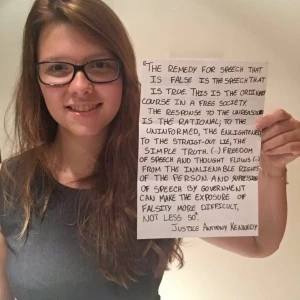 "THE REMEDY FOR SPEECH THAT
IS FALSE IS THE SPEECH THAT
IS TRUE. THIS IS THE ORDINARY
COURSE IN A FREE SOCIETY.
THE RESPONSE TO THE UNREASONED
IS THE RATIONAL; TO THE
UNINFORMED, THE ENLIGHTENED;
TO THE STRAIGHT-OUT LIE, THE
SIMPLE TRUTH. (...) FREEDOM
OF SPEECH AND THOUGHT FLOWS (...)
FROM THE INALIENABLE RIGHTS
OF THE PERSON. AND SUPPRESSION
OF SPEECH BY GOVERNMENT
CAN MAKE THE EXPOSURE OF
FALSITY MORE DIFFICULT,
NOT LESS SO".
JUSTICE ANTHONY KENNEDY